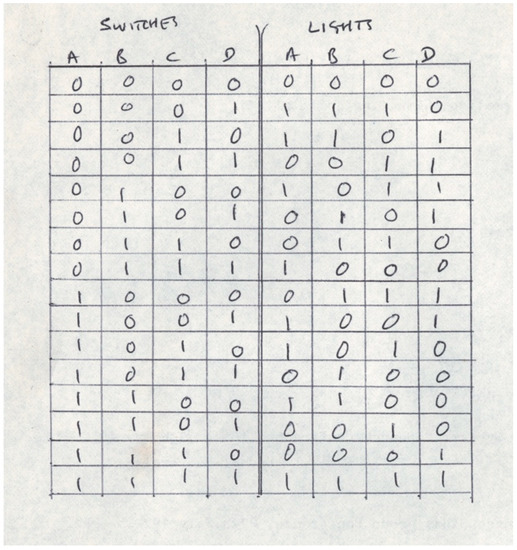 SWITCHES LIGHTS
A B C D A B C D
0 0 0 0 0 0 0 0
0 0 0 1 1 1 1 0
0 0 1 0 1 1 0 1
0 0 1 1 0 0 1 1
0 1 0 0 1 0 1 1
0 1 0 1 0 1 0 1
0 1 1 0 0 1 1 0
0 1 1 1 1 0 0 0
1 0 0 0 0 1 1 1
1 0 0 1 1 0 0 1
1 0 1 0 1 0 1 0
1 0 1 1 0 1 0 0
1 1 0 0 1 1 0 0
1 1 0 1 0 0 1 0
1 1 1 0 0 0 0 1
1 1 1 1 1 1 1 1